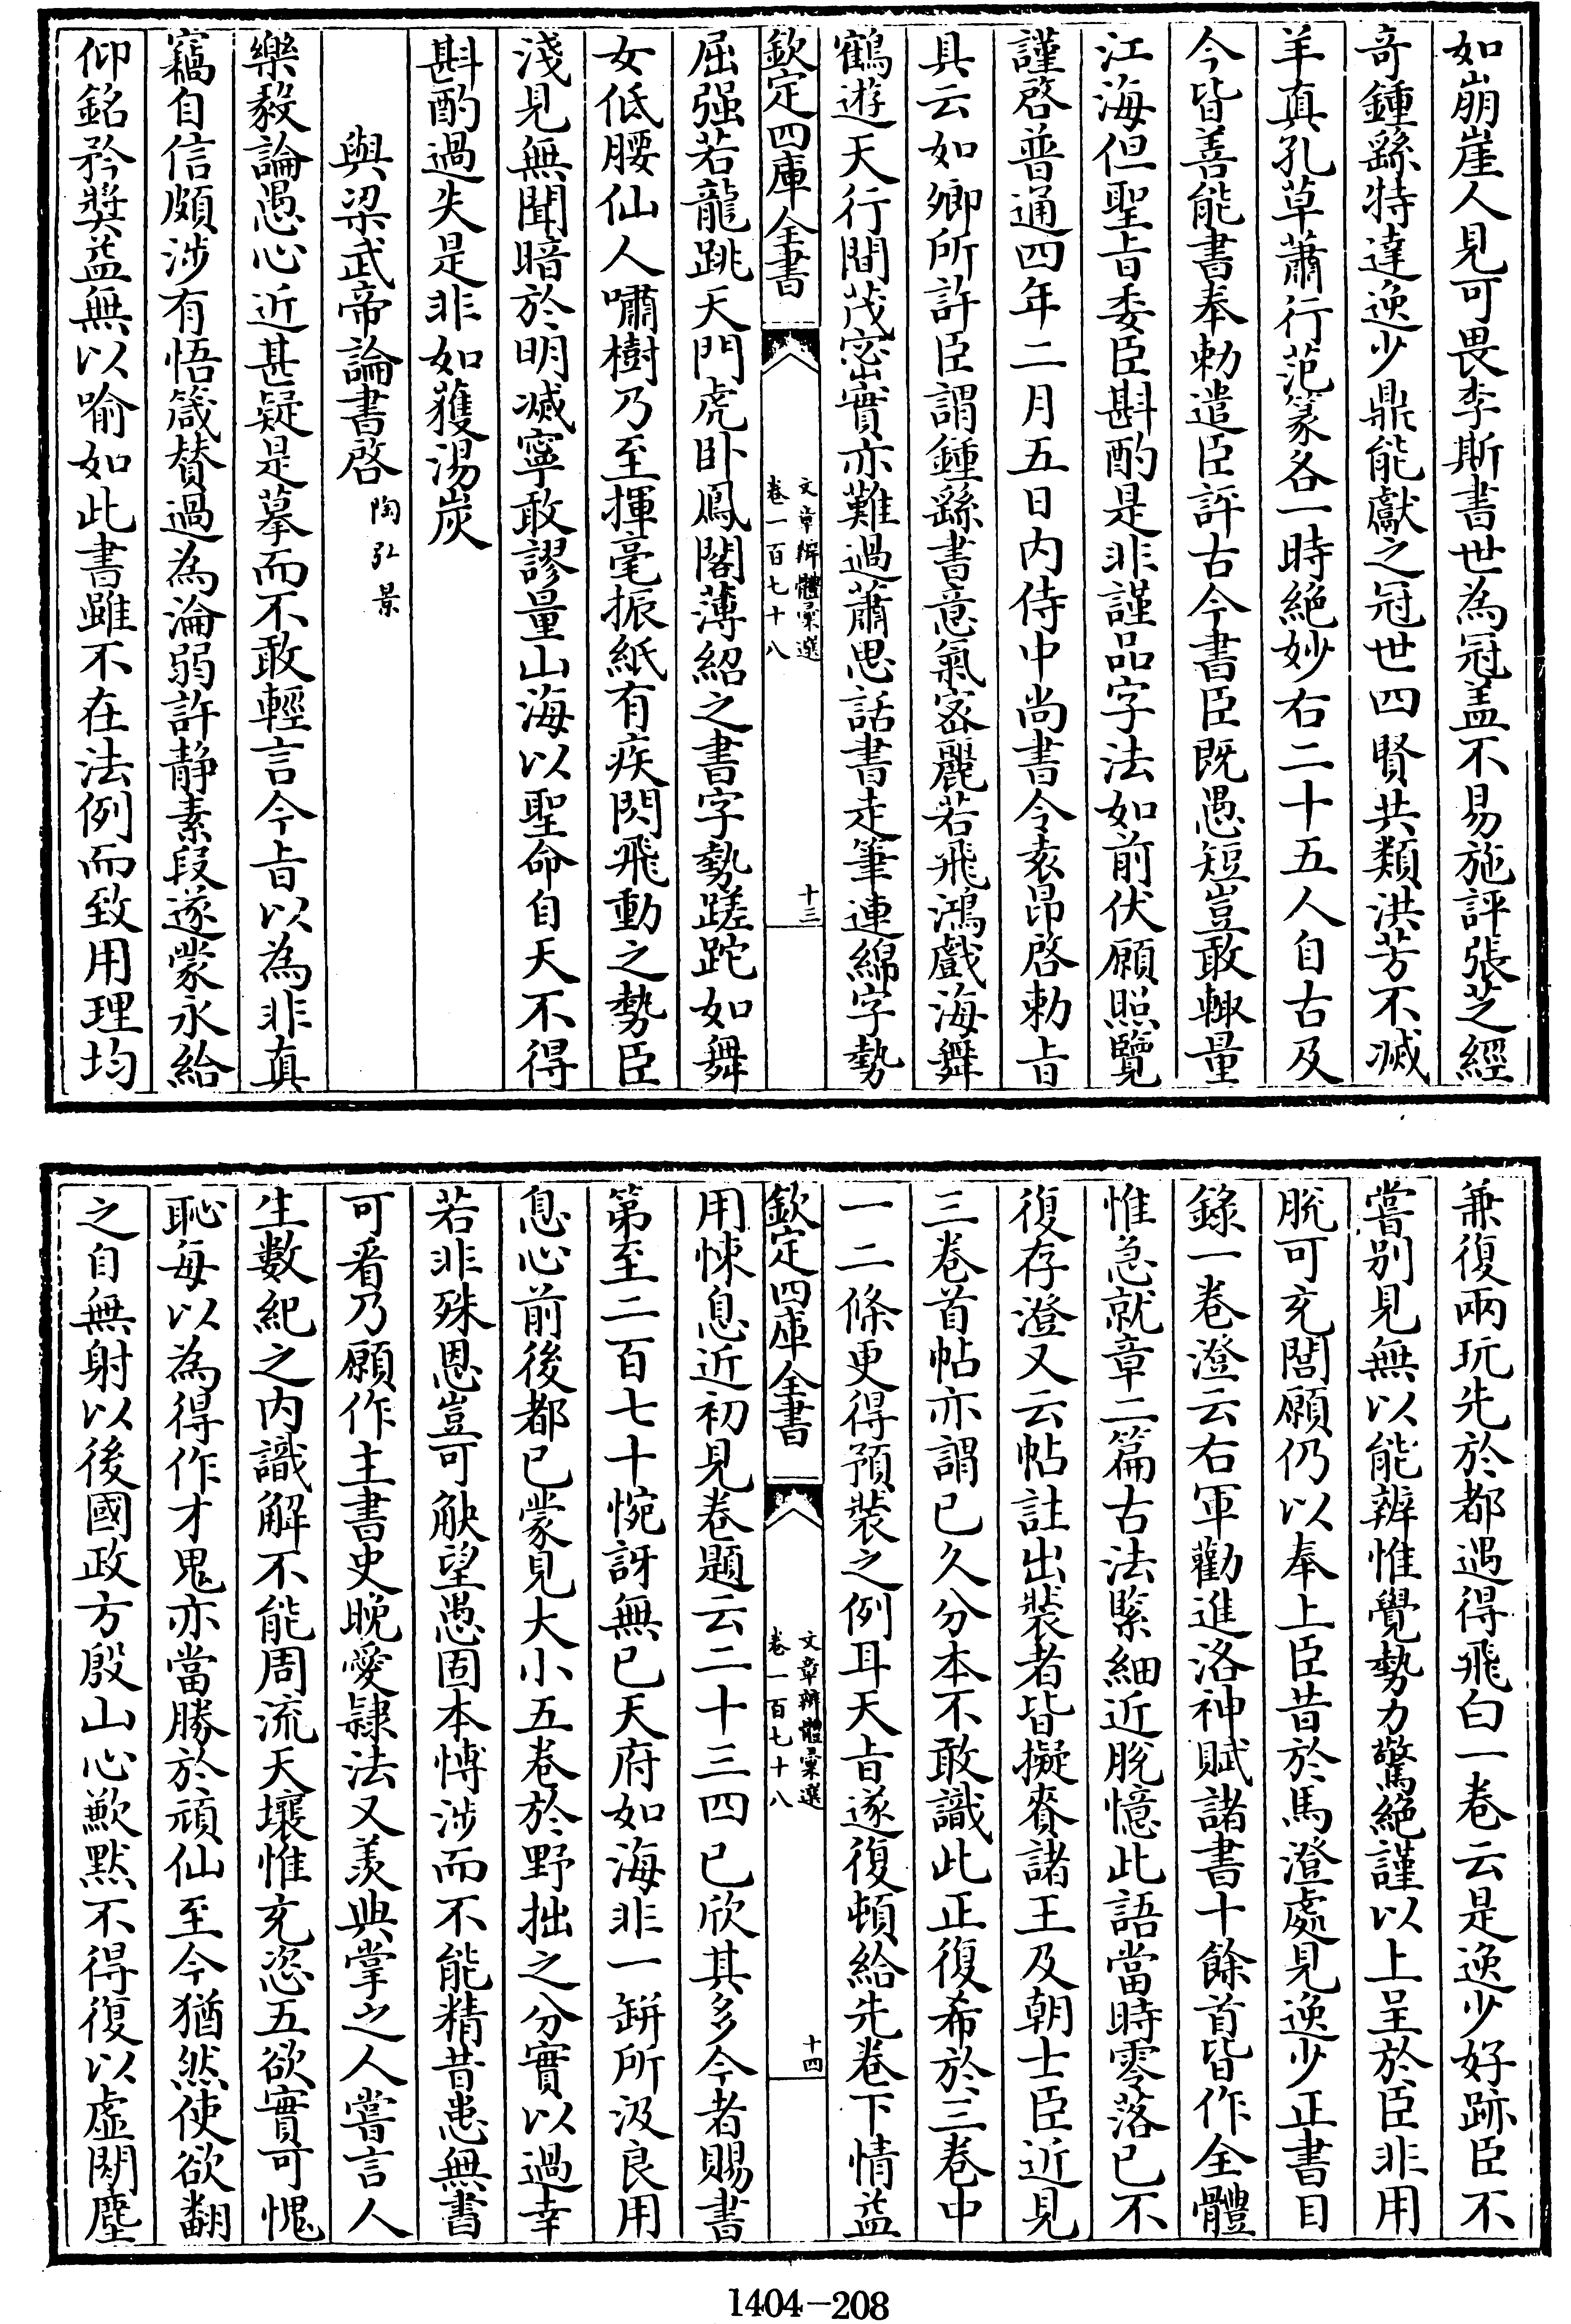 如崩崖人見可畏李斯書世為冠盖不易施評張芝經
奇鍾繇特達逸少鼎能獻之冠世四賢共類洪芳不滅
羊真孔草蕭行范篆各一時絕妙右二十五人自古及
今皆善能書奉勅遣臣評古今書臣既愚短豈敢輙量
江海但聖旨委臣斟酌是非謹品字法如前伏願照覽
謹啓普通四年二月五日内侍中尚書令袁昂啓勅旨
具云如卿所許臣謂鍾繇書意氣宻麗若飛鴻戲海舞
鶴遊天行間茂密實亦難過蕭思話書走筆連綿字勢
欽定四庫全書
文章辨體彙選
卷一百七十八
十三
屈强若龍跳天門虎卧鳳閣薄紹之書字勢蹉跎如舞
女低腰仙人嘯樹乃至揮毫振紙有疾閃飛動之勢臣
淺見無聞暗於明滅寧敢謬量山海以聖命自天不得
斟酌過失是非如獲湯炭
與梁武帝論書啓陶弘景
樂毅論愚心近甚疑是摹而不敢輕言今旨以為非真
竊自信頗涉有悟箴賛過為淪弱許静素段遂蒙永給
仰銘矜奬益無以喻如此書雖不在法例而致用理均
兼復兩玩先於都遇得飛白一卷云是逸少好跡臣不
嘗别見無以能辨惟覺勢力驚絕謹以上呈於臣非用
脱可充閣願仍以奉上臣昔於馬澄處見逸少正書目
錄一卷澄云右軍勸進洛神賦諸書十餘首皆作全體
惟急就章二篇古法緊細近脱憶此語當時零落已不
復存澄又云帖註出裝者皆擬賚諸王及朝士臣近見
三卷首帖亦謂已久分本不敢識此正復希於三卷中
一二條更得預裝之例耳天旨遂復頓給先卷下情益
欽定四庫全書
文章辨體彙選
卷一百七十八
十四
用悚息近初見卷題云二十三四已欣其多今者賜書
第至二百七十惋訝無已天府如海非一缾所汲良用
息心前後都已蒙見大小五卷於野拙之分實以過幸
若非殊恩豈可觖望愚固本博涉而不能精昔患無書
可看乃願作主書史晚愛隸法又羨典掌之人嘗言人
生數紀之内識解不能周流天壤惟充恣五欲實可愧
恥每以為得作才鬼亦當勝於頑仙至今猶然使欲翻
之自無射以後國政方殷山心歉默不得復以虛閑塵
1404-208